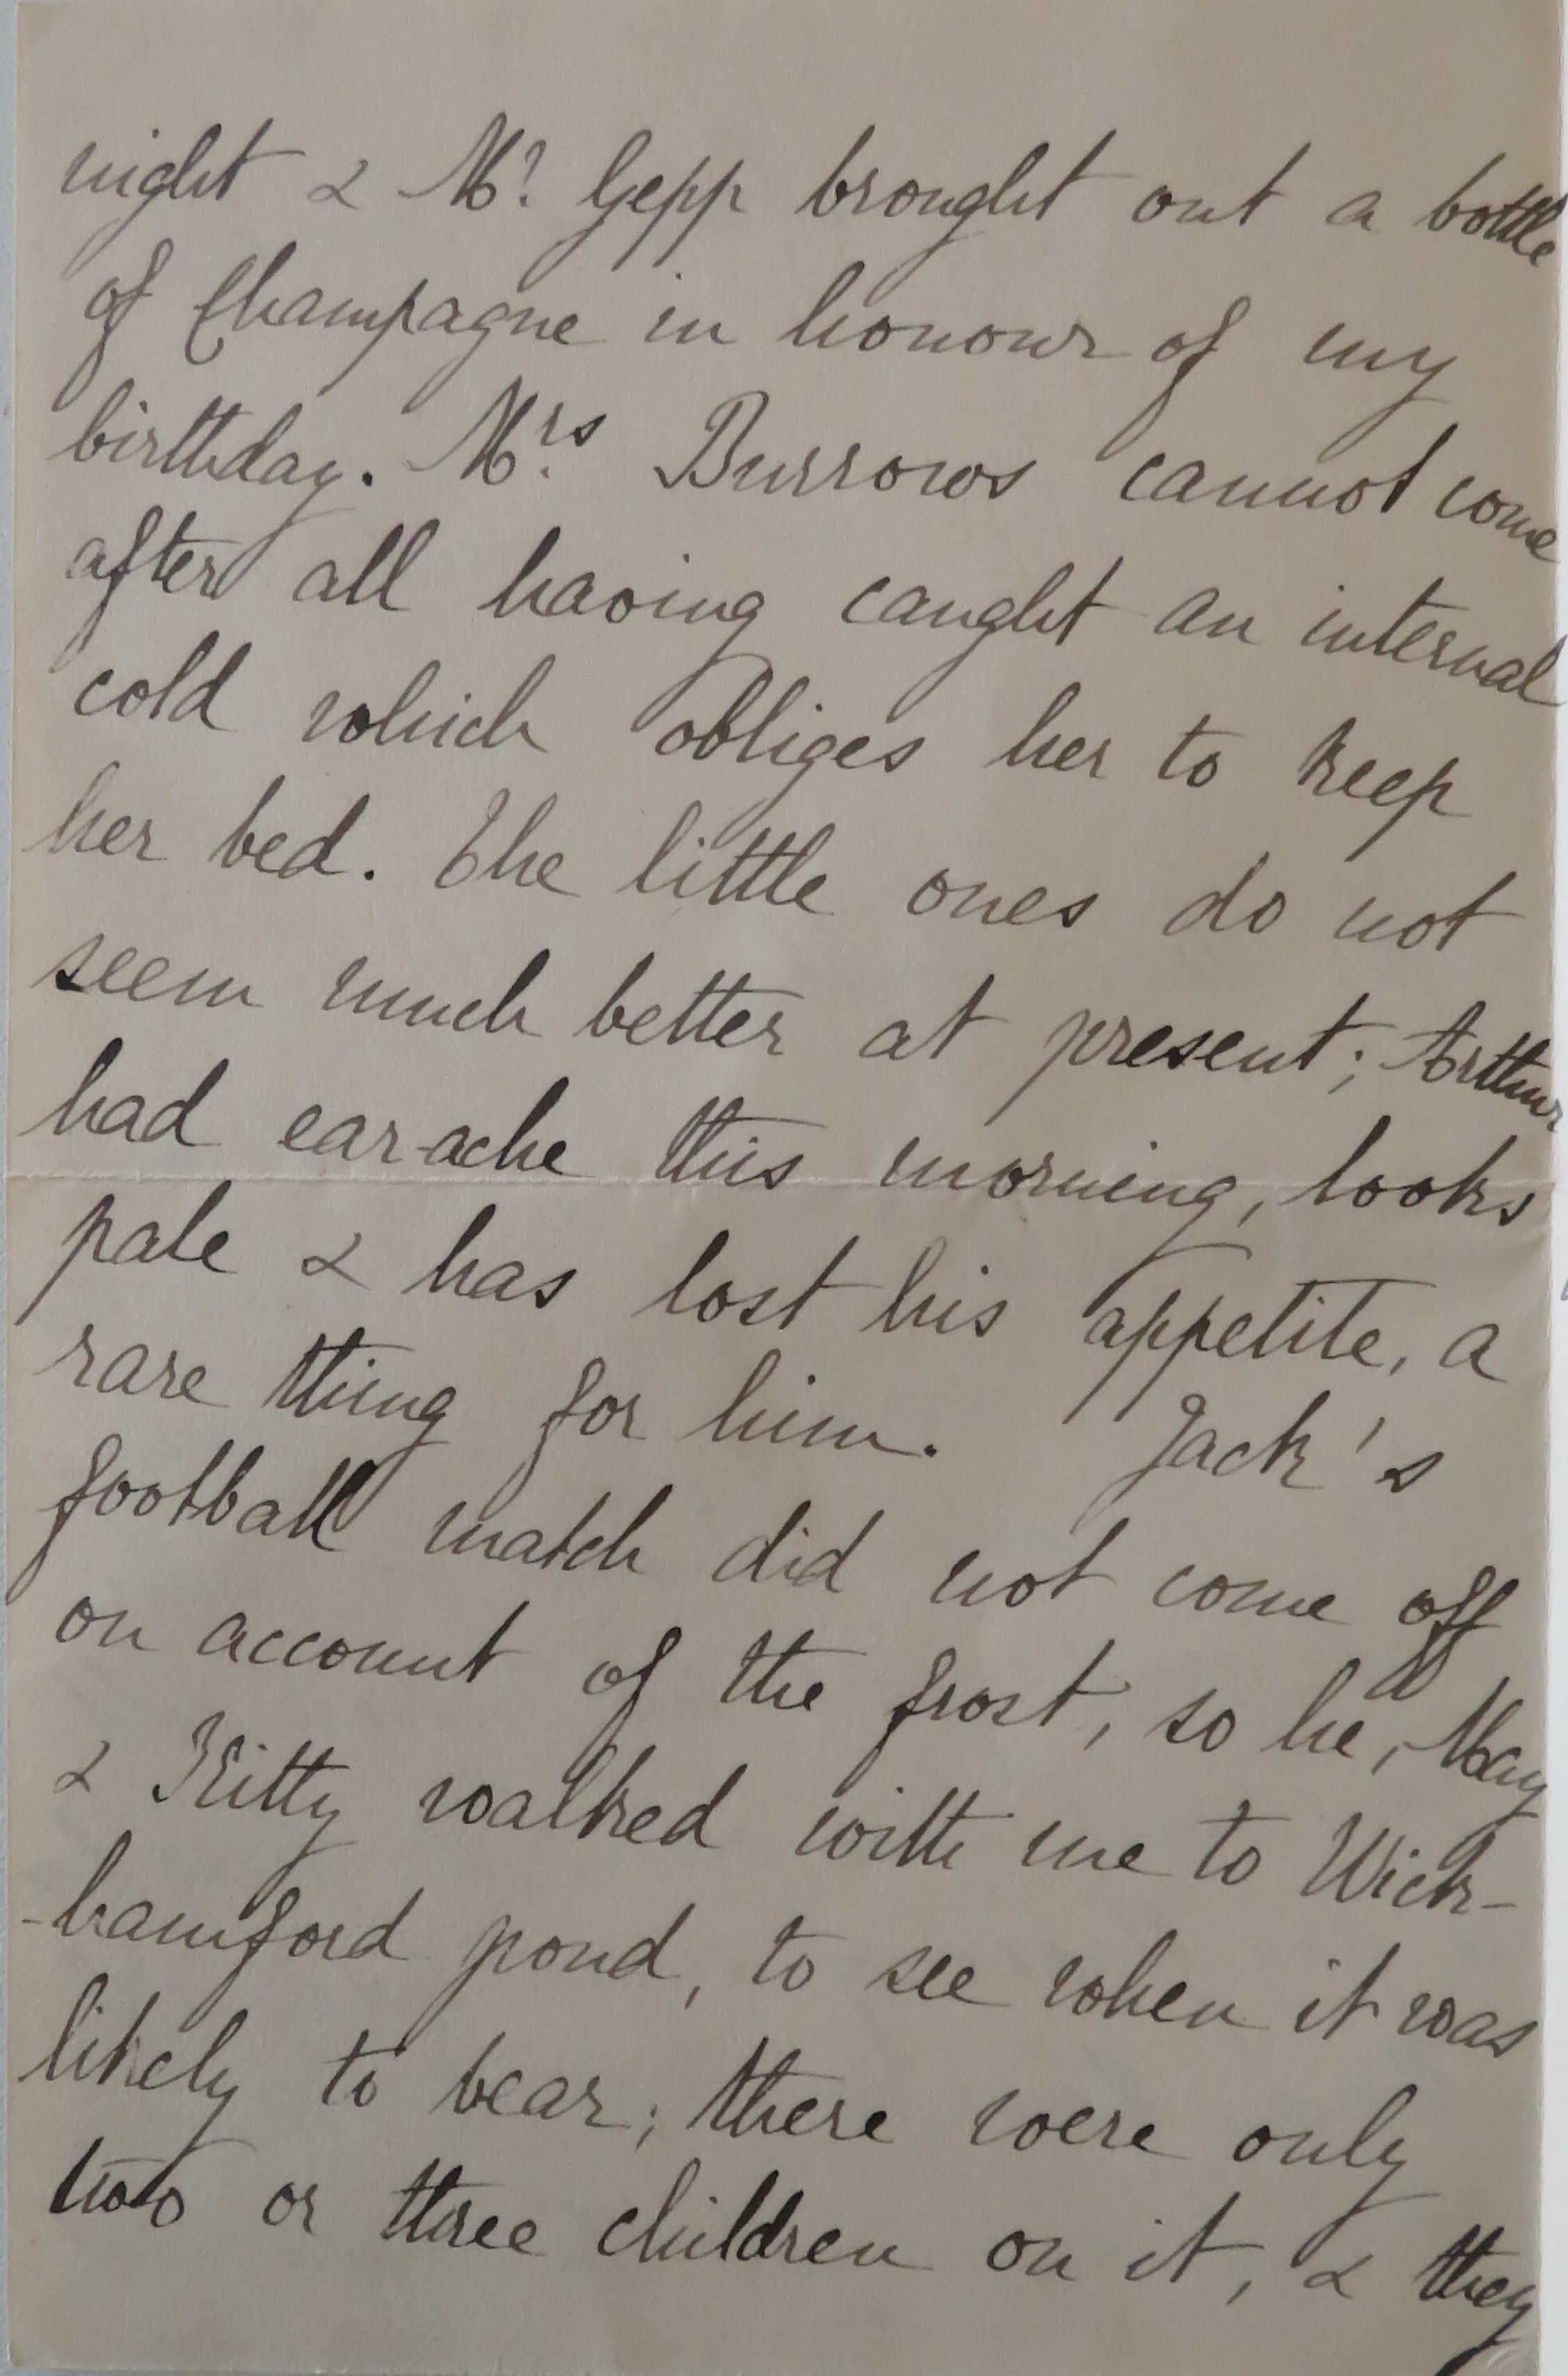 night & Mr. Gepp brought out a bottle
of Champagne in honour of my
birthday. Mrs. Burrows cannot come
after all having caught an internal
cold which obliges her to keep
her bed. The little ones do not
seem much better at present; Arthur
had ear-ache this morning, looks
pale & has lost his appetite, a
rare thing for him. Jack's
football match did not come off
on account of the frost, so he, May
& Kitty walked with me to Wick-
-hamford pond, to see when it was
likely to bear; there were only
two or three children on it, & they